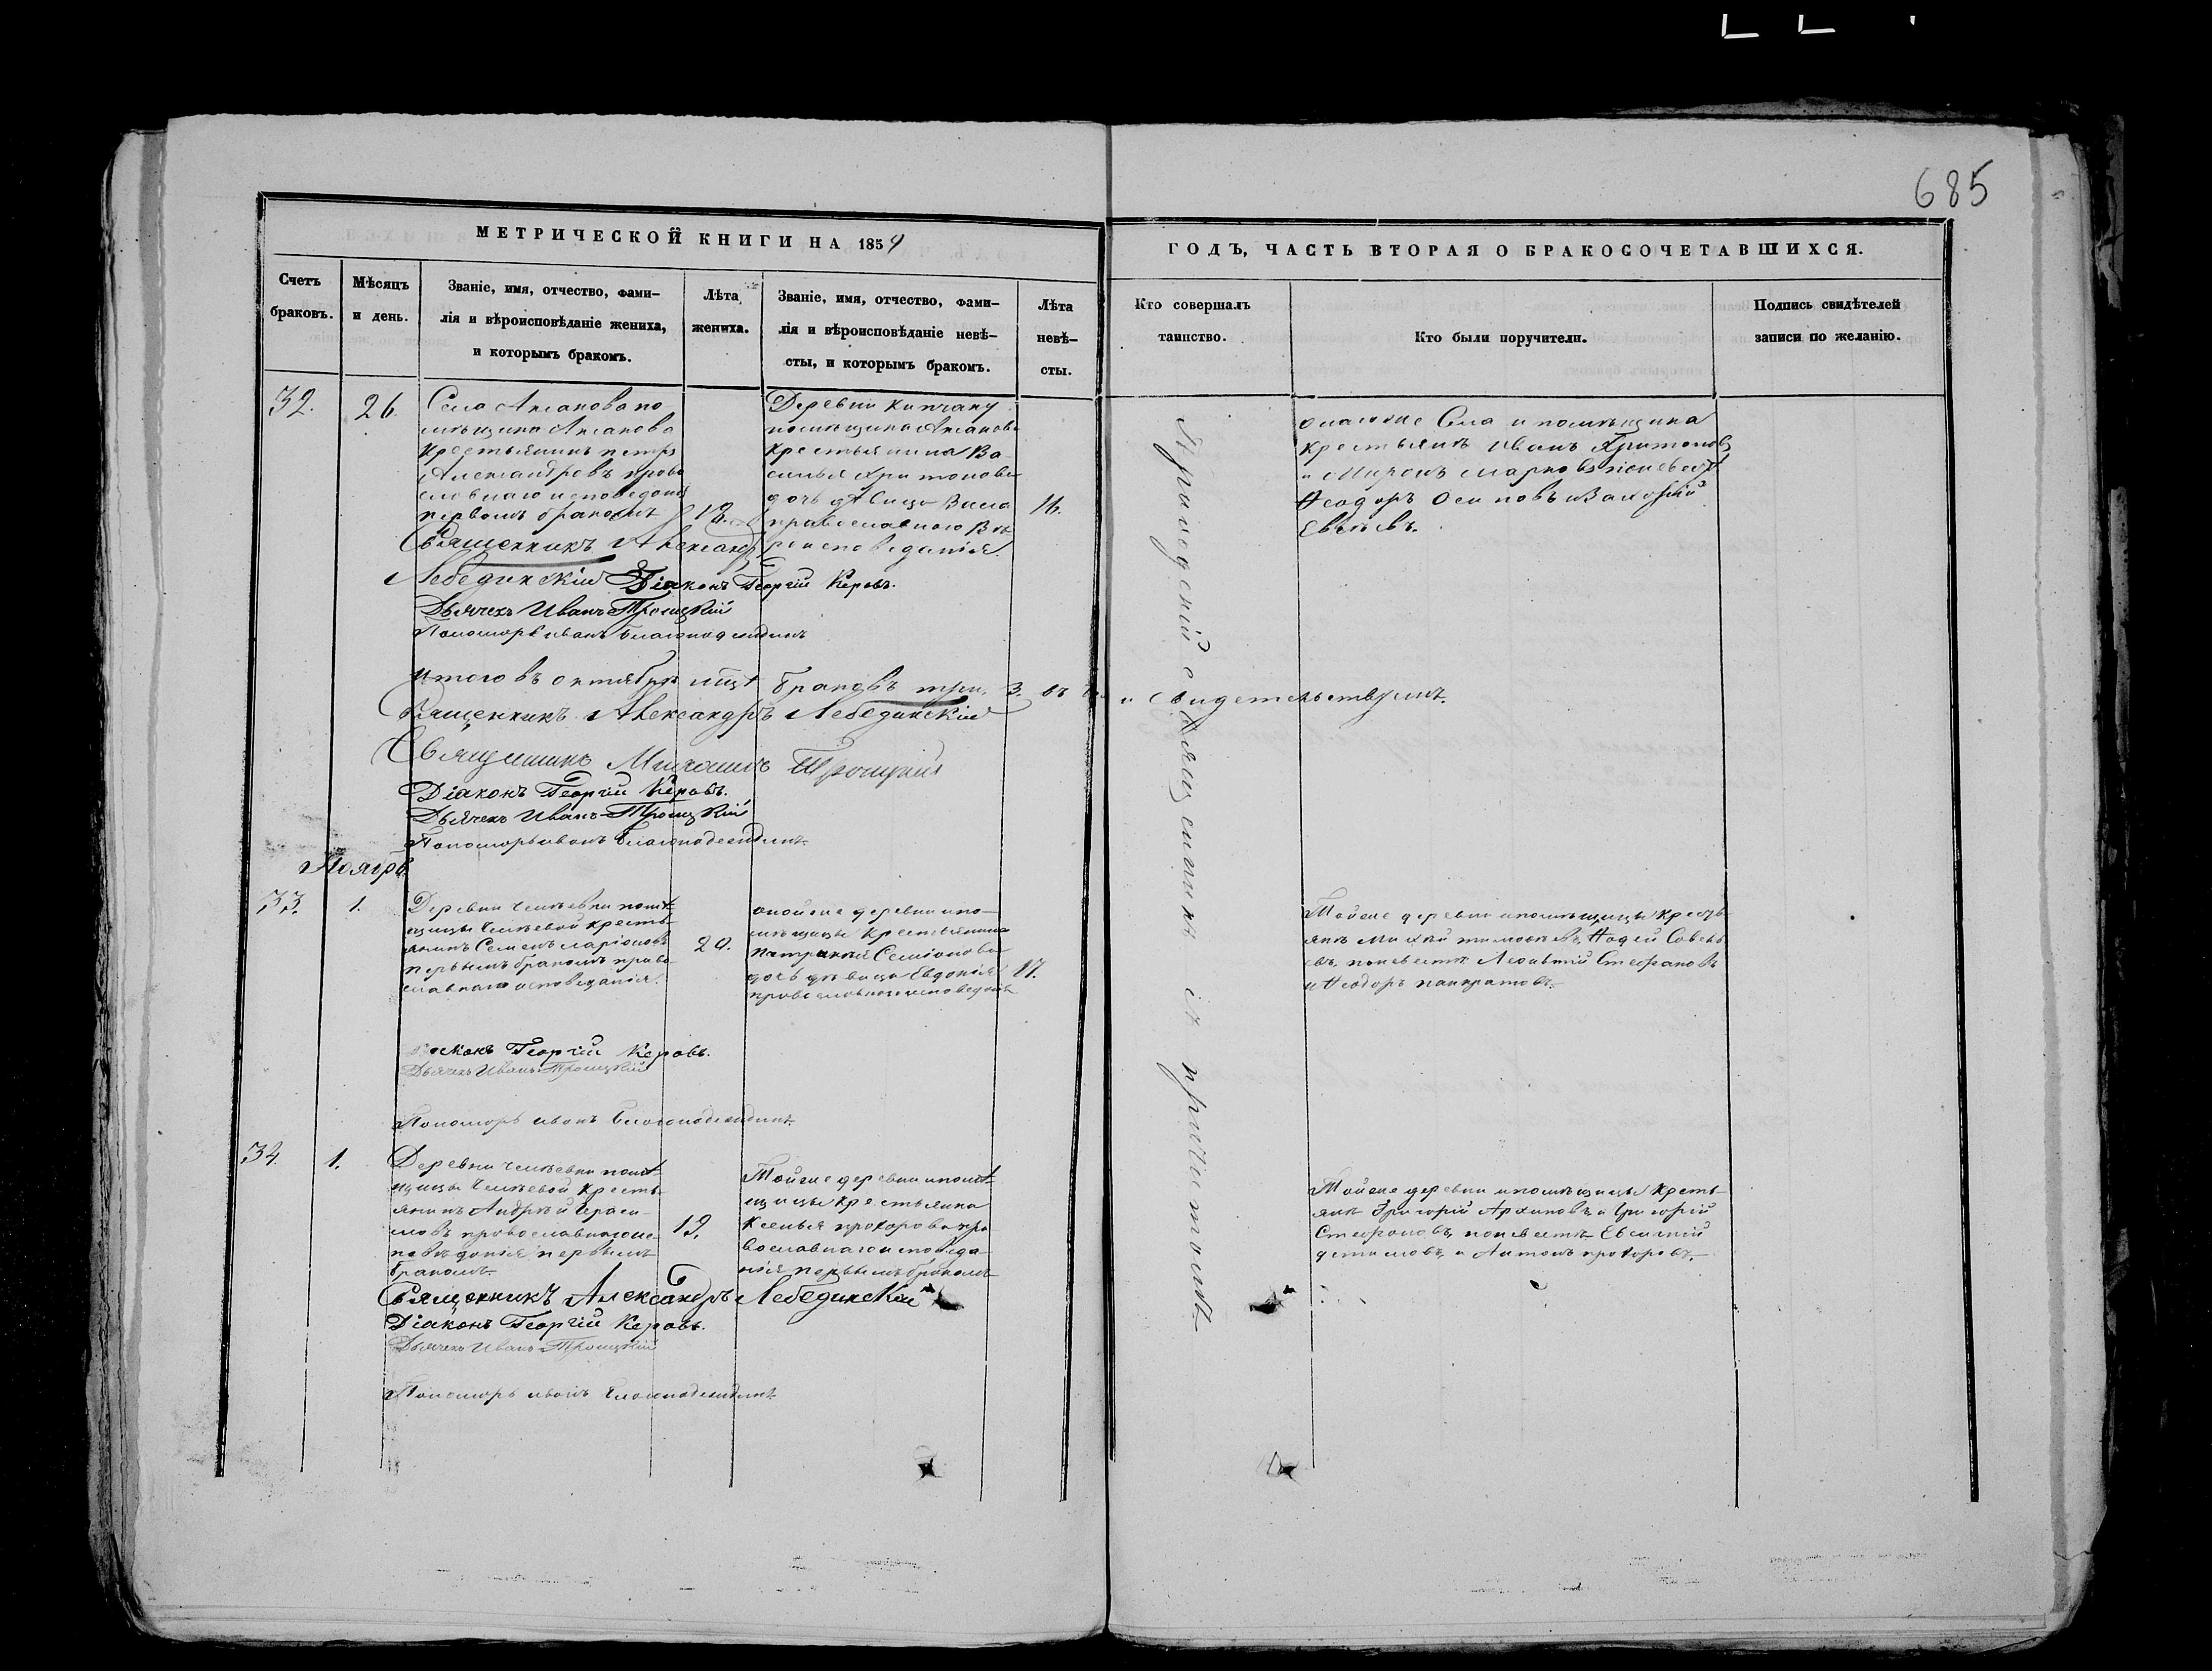 685
МЕТРИЧЕСКОЙ КНИГИ НА 1859
ГОДЪ, ЧАСТЬ ВТОРАЯ О БРАКОСОЧЕТАВШИХСЯ.
Счетъ
браковъ.
Мѣсяцъ
и день.
Званіе, имя, отчество, фами-
лія и вѣроисповѣданіе жениха,
и которымъ бракомъ.
Лѣта
жениха.
Званіе, имя, отчество, фами-
лія и вѣроисповѣданіе невѣ-
сты, и которымъ бракомъ.
Лѣта
невѣ-
сты.
Кто совершалъ
таинство.
Кто были поручители.
Подпись свидѣтелей
записи по желанію.
32.
26.
Села Аксакова по
мѣщика Аксакова
Крестьянинъ петръ
Александровъ право
славнаго исповеданія
первымъ бракомъ
18.
Деревни Кипчаку
помѣщика Аксакова
Крестьянина Ва
силья Харитонова
дочь дѣвица Васса
православнаго Вѣ
роисповеданія
16.
Приходскій священникъ съ причтомъ
онагоже Села и помѣщика
Крестьянъ иванъ Харитоновъ
и Миронъ марковъ
Ѳеодоръ Осиповъ
Священникъ Александръ
Лебединскій Діаконъ Георгій Керовъ.
Дьячекъ Иванъ Троицкій
Пономарь иванъ
итого въ октябрѣ мцѣ браковъ три. 3.
свидетельствуемъ.
Священникъ Александръ Лебединскій
Священникъ Михаилъ Троицкій
Діаконъ Георгій Керовъ.
Дьячекъ Иванъ Троицкій
Пономарь иванъ
Ноябрь
33.
1.
Деревни помѣ
щицы кресть
янинъ Семенъ ларіоновъ
первымъ бракомъ право
славнаго исповеданія.
20.
онойже деревни и по
мѣщицы Крестьянина
Семіонова
дочь дѣвица Евдокія
православнаго исповеданія
17.
Тойже деревни и помѣщицы Кресть
янъ
Леонтій Стефановъ
и Ѳеодоръ панкратовъ.
Діаконъ Георгій Керовъ.
Дьячекъ Иванъ Троицкій
Пономарь иванъ
34.
1.
Деревни помѣ
щицы Кресть
янинъ Андрей Гераси
мовъ православнаго ис
поведанія первымъ
бракомъ.
19.
Тойже деревни и помѣ
щицы крестьянка
Ксенья прохорова пра
вославнаго исповеда
нія первымъ бракомъ
Тойже деревни и помѣщицы Кресть
янъ Григорій Архиповъ и Григорій
Стефановъ, по невестѣ
и Антонъ прохоровъ.
Священникъ Александръ Лебединскій
Діаконъ Георгій Керовъ.
Дьячекъ Иванъ Троицкій
Пономарь иванъ